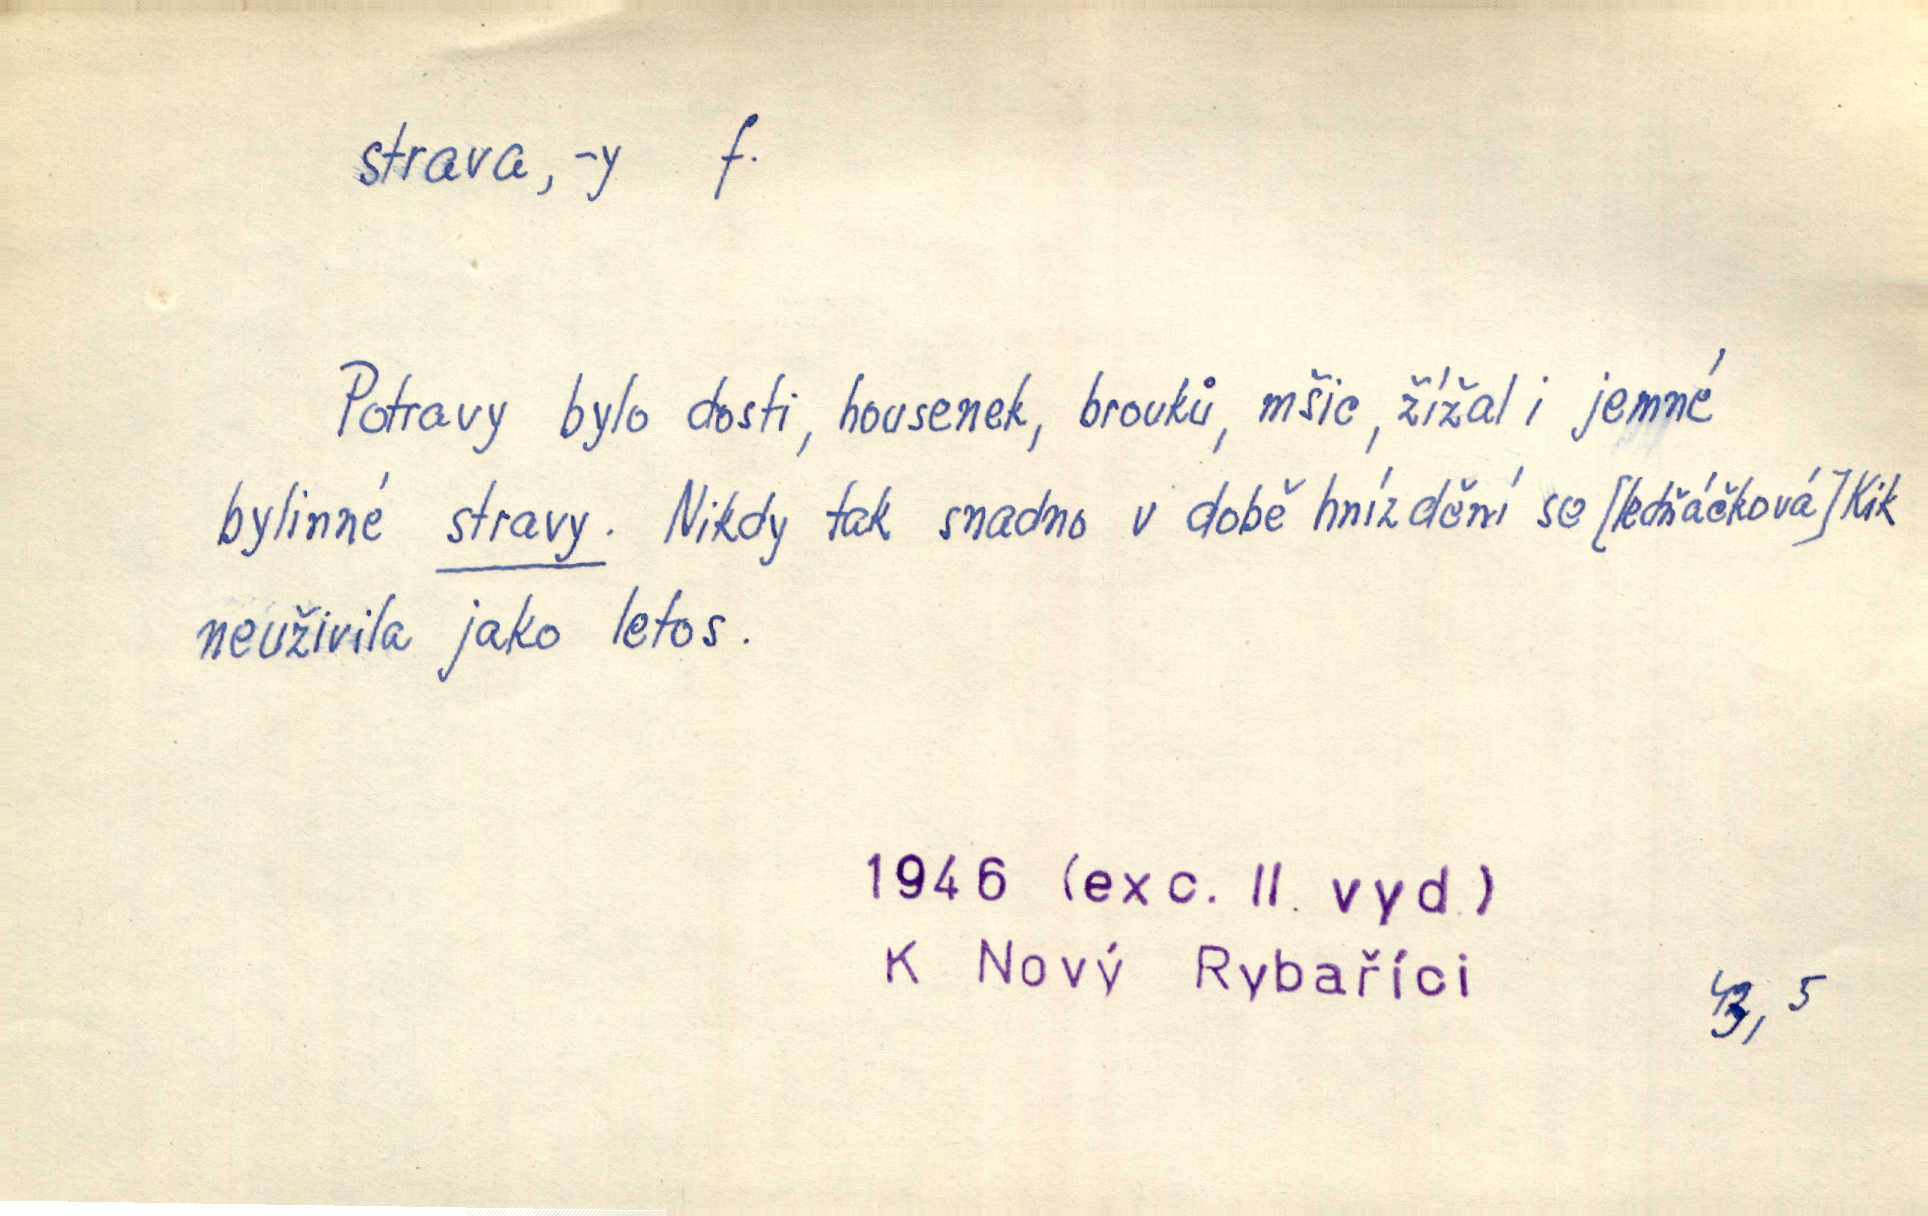 strava, -y f.
Potravy bylo dosti, housenek, brouků, mšic, žížal i jemné
bylinné stravy. Nikdy tak snadno v době hnízdění se [ledňáčková] Kik
neuživila jako letos.
1946 (exc. II. vyd.)
K Nový Rybaříci
43, 5